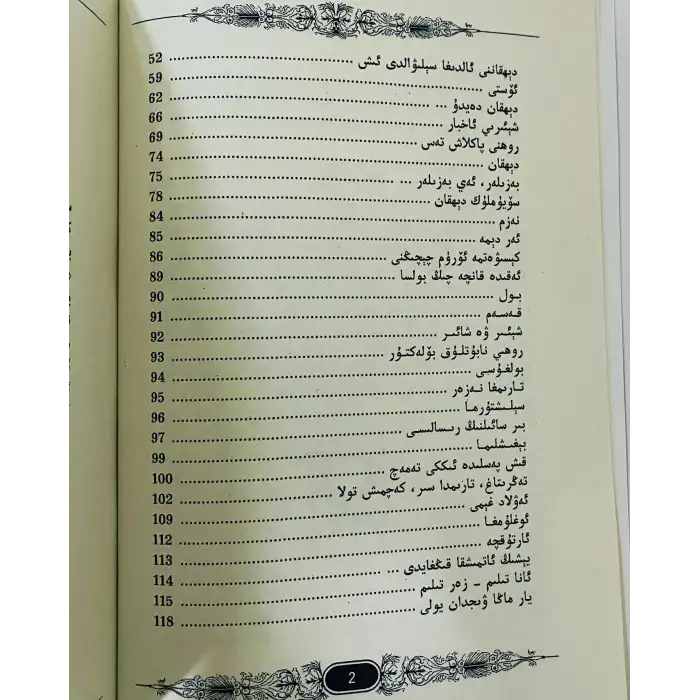 دېھقاننى ئالدىغا سېلىۋالدى ئىش ........ 52
ئۆستى ........ 59
دېھقان دەيدۇ ... ........ 62
شېئىرىي ئاخبار ........ 66
روھنى پاكلاش تەس ........ 69
دېھقان ........ 74
بەزىلەر، ئەي بەزىلەر ... ........ 75
سۆيۈملۈك دېھقان ........ 78
نەزم ........ 84
ئەر دېمە ........ 85
كېسىۋەتمە ئۆرۈم چېچىڭنى ........ 86
ئەقىدە قانچە چىڭ بولسا ........ 89
بول ........ 90
قەسەم ........ 91
شېئىر ۋە شائىر ........ 92
روھىي نابۇتلۇق بۆلەكتۇر ........ 93
بولغۇسى ........ 94
تارىمغا نەزەر ........ 95
سېلىشتۇرما ........ 96
بىر سائىلنىڭ رىسالىسى ........ 97
بېغىشلىما ........ 99
قىش پەسلىدە ئىككى تەمەچ ........ 100
تەڭرىتاغ، تارىمدا سىر، كەچمىش تولا ........ 102
ئەۋلاد غېمى ........ 109
ئوغلۇمغا ........ 112
ئارتۇقچە ........ 113
يېشىڭ ئاتمىشقا قىڭغايدى ... ........ 114
ئانا تىلىم - زەر تىلىم ........ 115
يار ماڭا ۋىجدان يولى ........ 118
2